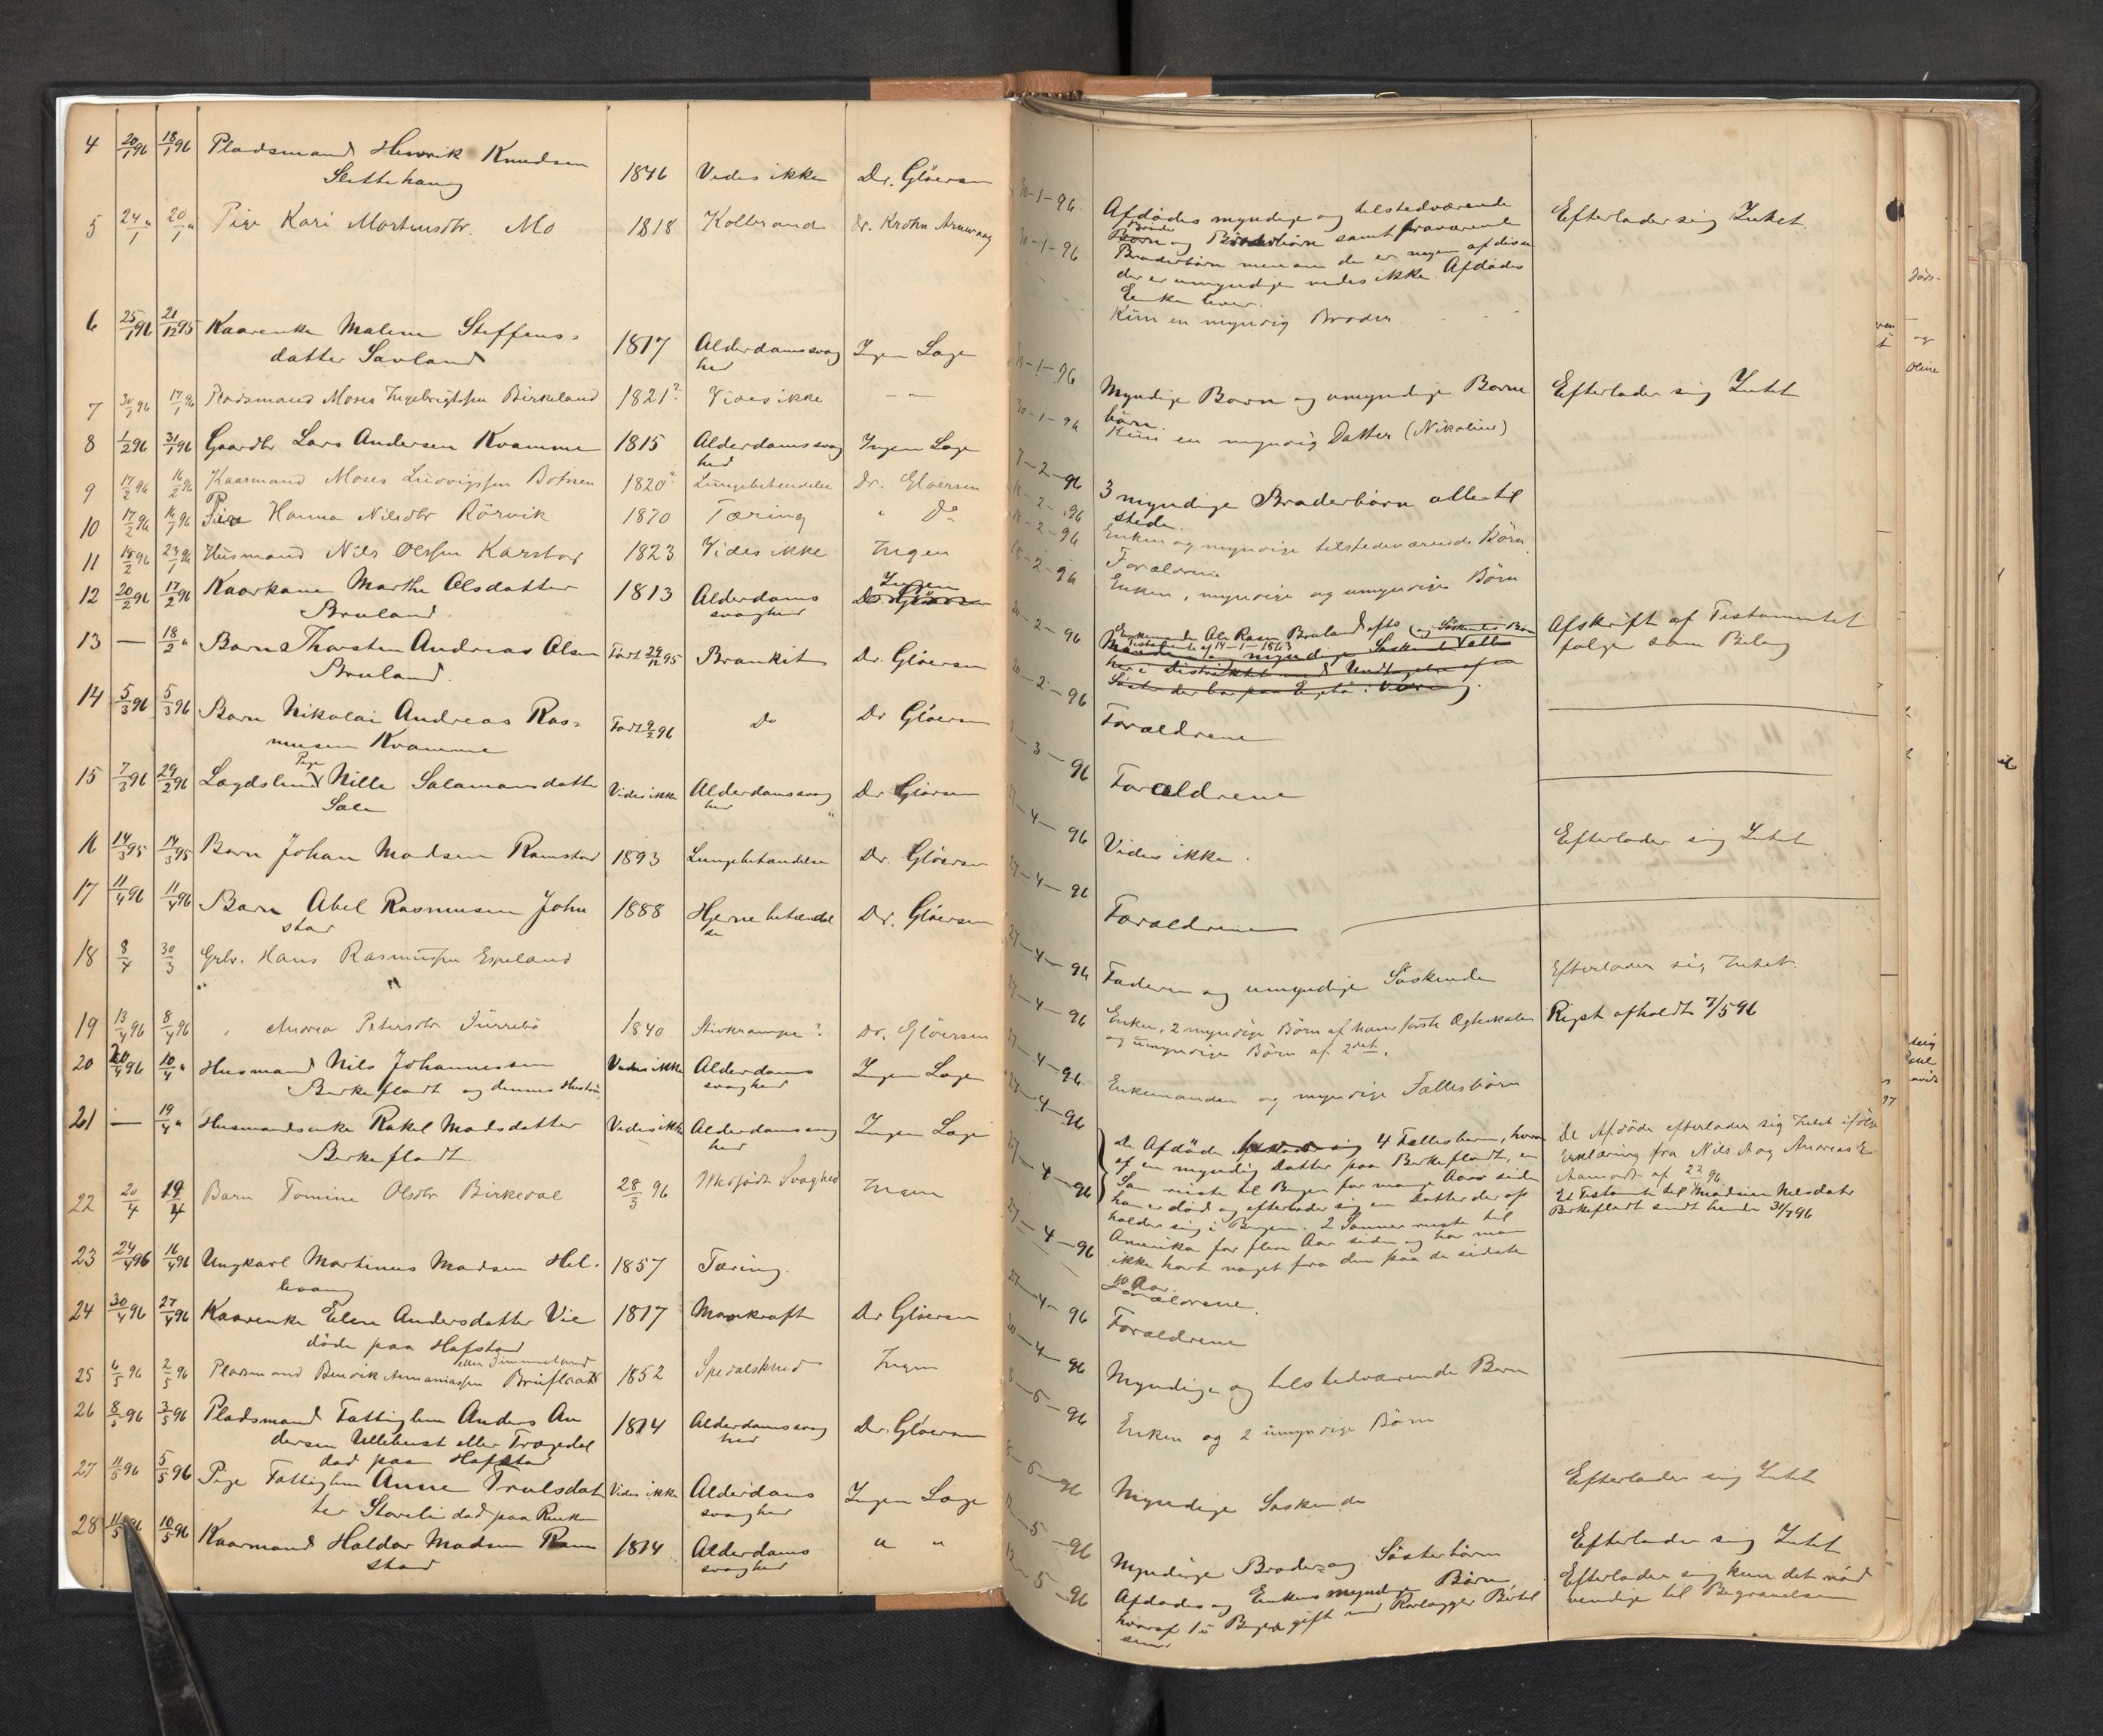 4 20/1 96 18/1 96 Pladsmand Henrik Knudsen 1846 Vides ikke Dr. Gløersen
Slettehaug
5 24/1 " 20/1 " Pige Kari Mortensdtr. Mo 1818 Koldbrand Dr. Krohn
6 25/1 96 21/12 95 Kaarenke Malene Steffens= 1817 Alderdomssvag Ingen Læge
datter Savland hed
7 30/1 96 17/1 96 Pladsmand Moses Ingebrigtsen Birkeland 1821? Vides ikke — "
8 1/2 96 31/1 96 Gaardbr Lars Andersen Kvamme 1815 Alderdomssvag Ingen Læge
hed
9 17/2 96 16/2 96 Kaarmand Moses Ludvigsen Botnen 1820? Lungebetændelse Dr. Gløersen
10 17/2 96 14/1 96 Pige Hanna Nilsdtr Rörvik 1870 Tæring " Do
11 18/2 96 23/1 96 Husmand Nils Olssen Karstad 1823 Vides ikke Ingen
12 20/2 96 17/2 96 Kaarkone Marthe Olsdatter 1813 Alderdoms Ingen
Bruland svaghed Dr. Gløersen
13 — 18/2 " Barn Thorsten Andreas Olsen Født 29/12 95 Bronkit Dr. Gløersen
Bruland.
14 5/3 96 5/3 96 Barn Nikolai Andreas Ras= Født 9/2 96 Do Dr Gløersen
musen Kvamme
15 7/3 96 29/2 96 Lægdslem Pige Nille Salamonsdatter Vides ikke Alderdomssvag Dr Gløersen
hed
16 14/3 95 14/3 95 Barn Johan Madsen Ramstad 1893 Lungebetændelse Dr. Gløersen
17 11/4 96 11/4 96 Barn Abel Rasmusen John 1888 Hjernebetændel Dr. Gløersen
stad se
18 8/4 30/3 Grbr. Hans Rasmussen Espeland
19 13/4 96 8/4 96 " Andrea Petersdtr 1840 Stivkrampe? Dr. Gløersen
20 20/4 96 10/4 " Husmand Nils Johannessen Vides ikke Alderdoms Ingen Læge
Birkeflodt og dennes Hustru svaghed
21 — 19/4 " Husmandsenke Rakel Madsdatter Vides ikke Alderdomssvag Ingen Læge
Birkeflodt hed
22 20/4 19/4 Barn Tomine Olsdtr Birkedal 28/3 96 Medfødt Svaghed Ingen
23 24/4 96 16/4 96 Ungkarl Martinus Madsen Hel- 1857 Tæring.
levang
24 30/4 96 27/4 96 Kaarenke Elen Andersdatter Vie 1817 Mavekræft Dr Gløersen
døde paa Hafstad
25 6/5 96 2/5 96 Pladsmand Benrik Annaniassen Bruflaat 1852 Spedalskhed Ingen
26 8/5 96 3/5 96 Pladsmand Fattiglem Anders An 1814 Alderdomssvag Dr. Gløersen
dersen eller hed
død paa Hafstad
27 11/5 96 5/5 96 Pige Fattiglem Anne Trulsdat Vides ikke Alderdoms Ingen Læge
ter død paa svaghed
28 11/5 96 10/5 96 Kaarmand Haldor Madsen Ram 1814 Alderdoms " "
stad svaghed
30-1-96 Afdødes myndige og tilstedværende Efterlader sig Intet
Børn og Broderbørn samt fraværende
30-1-96 Broderbørn men om der er nogen af disse
der er umyndige vides ikke. Afdødes
Enke lever.
Kun en myndig Broder.
30-1-96 Myndige Børn og umyndige Børne Efterlader sig Intet
børn.
30-1-96 Kun en myndig Datter (Nikoline)
7-2-96 3 myndige Broderbørn alle til
stede.
18-2-96 Enken og myndige tilstedeværende Børn.
18-2-96 Forældrene
18-2-96 Enken, myndige og umyndige Børn
20-2-96 Enkemanden Ole Rasm Bruland Afskrift af Testamentet
Testamente af 14-1-1863 følge som Bilag
20-2-96 Forældrene
3-96 Forældrene
4-96 Vides ikke. Efterlader sig Intet
27-4-96 Forældrene
27-4-96 Faderen og umyndige Söskende Efterlader sig Intet.
27-4-96 Enken, 2 myndige Börn af hans første Ægteskab Rigst afholdt 7/5 96
og umyndige Börn af 2det.
27-4-96 Enkemanden og myndige Fællesbörn
27-4-96 De Afdøde 4 Fællesbørn, hvoraf De Afdøde efterlader sig Intet ifølge
af en myndig Datter paa Birkeflodt, en Erklæring fra Nils A og Andreas E
27-4-96 Søn reiste til Bergen for mange Aar siden Aamodt af 22/4 96.
han er død og efterlader sig en Datter der op Et Testamte til Madsine Nilsdatr
holder sig i Bergen. 2 Sønner reiste til Birkeflodt sendt hende 30/7 96
27-4-96 Amerika for flere Aar siden og har man
ikke hørt noget fra dem paa de sidste
10 Aar.
Forældrene.
27-4-96 Forældrene
30-4-96 Myndige og tilstedværende Børn
8-5-96 Enken og 2 umyndige Börn
8-5-96 Myndige Søskende Efterlader sig Intet
12-5-96 Myndige Broder- og Søsterbørn Efterlader sig Intet
12-5-96 Afdødes og Enkens myndige Børn Efterlader sig kun det nød
hvoraf 1 i Bergen gift med vendige til Begravelsen